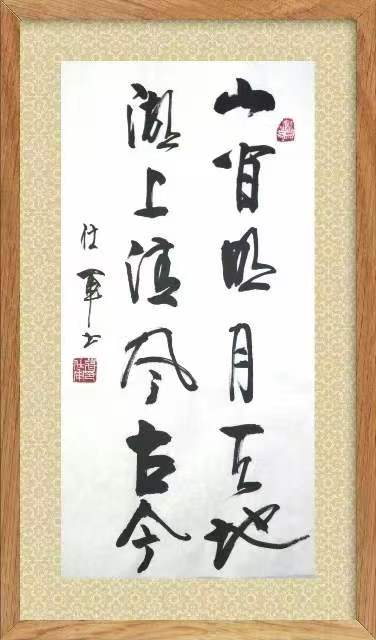 山明月天地
湖上清风古今
仕军书